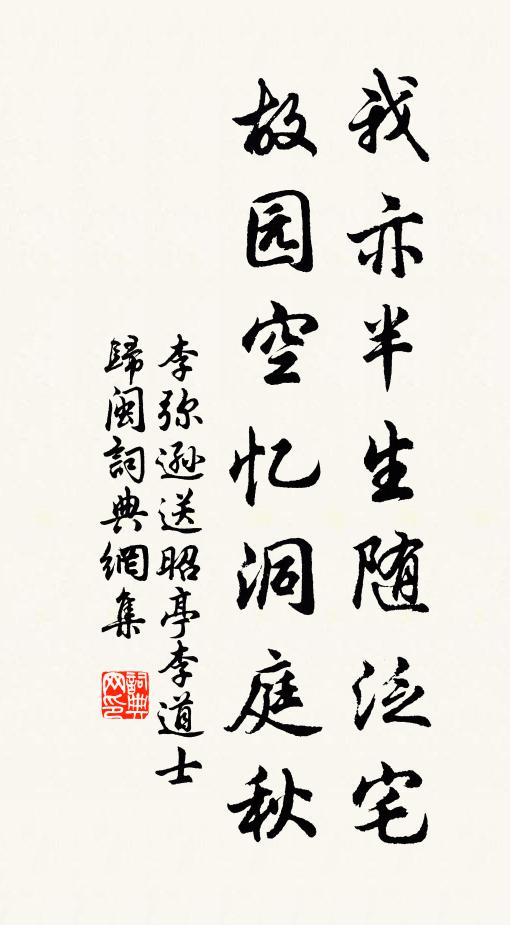 我亦半生随泛宅
故园空忆洞庭秋
李弥逊送昭亭李道士
歸闽詞典網集
詞典网印